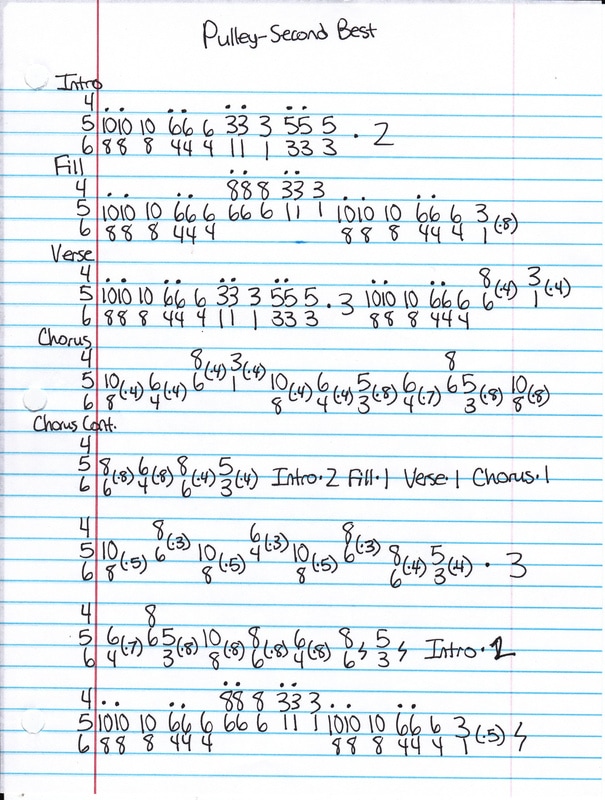 Pulley-Second Best
Intro
4 . . . . . . . .
5 1010 10 66 6 33 3 55 5 . 2
6 88 8 44 4 11 1 33 3
Fill
4 . . . . 88 8 33 3 . . . .
5 1010 10 66 6 66 6 11 1 1010 10 66 6 3
6 88 8 44 4 88 8 44 4 1 (.8)
Verse
4 . . . . . . . . . . . . 8 3
5 1010 10 66 6 33 3 55 5 . 3 1010 10 66 6 6 (.4) 1 (.4)
6 88 8 44 4 11 1 33 3 88 8 44 4
Chorus
4 8 3 8
5 10 6 6 (.4) 1 (.4) 10 6 5 6 6 5 10
6 8 (.4) 4 (.4) 8 (.4) 4 (.4) 3 (.8) 4 (.7) 3 (.8) 8 (.8)
Chorus Cont.
4
5 8 6 8 5 Intro . 2 Fill . 1 Verse . 1 Chorus . 1
6 6 (.8) 4 (.8) 6 (.4) 3 (.4)
4 8 6 8
5 10 6 (.3) 10 4 (.3) 10 6 (.3) 8 5 . 3
6 8 (.5) 8 (.5) 8 (.5) 6 (.4) 3 (.4)
4 8
5 6 6 5 10 8 6 8 5 Intro . 2
6 4 (.7) 3 (.8) 8 (.8) 6 (.8) 4 (.8) 6 3
4 . . . . 88 8 33 3 . . . .
5 1010 10 66 6 66 6 11 1 1010 10 66 6 3
6 88 8 44 4 88 8 44 4 1 (.5)